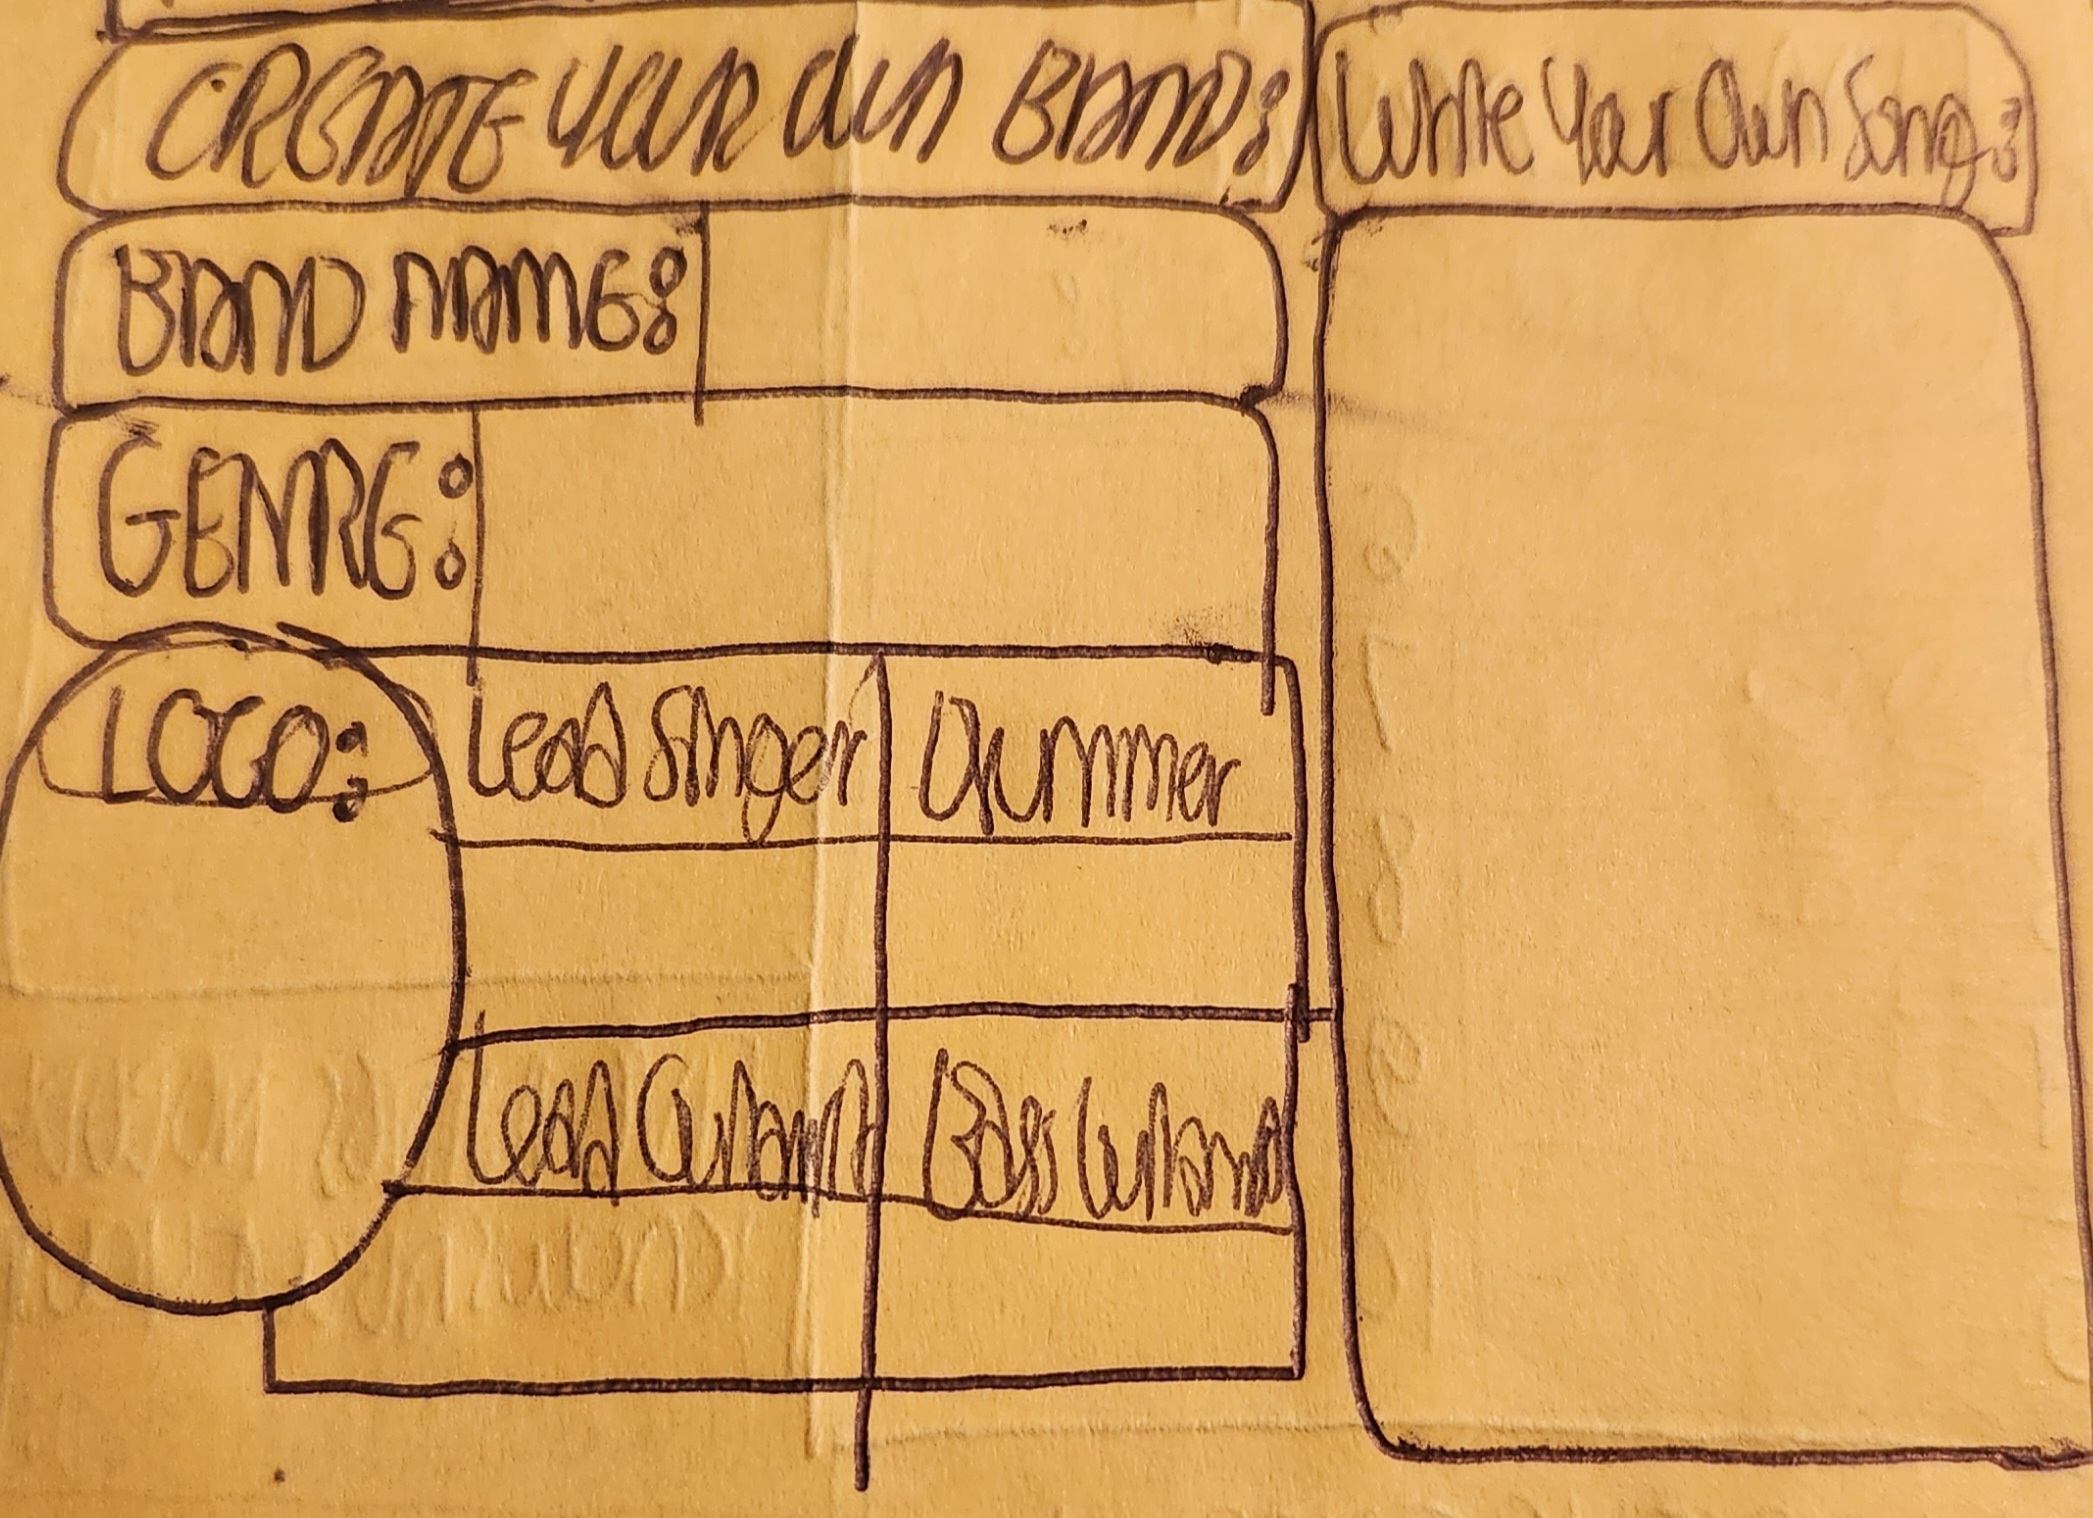 CREATE YOUR OWN BRAND:
Write Your Own Song:
BRAND NAME:
GENRE:
LOGO:
Lead Singer
Drummer
Lead Guitarist
Bass Guitarist